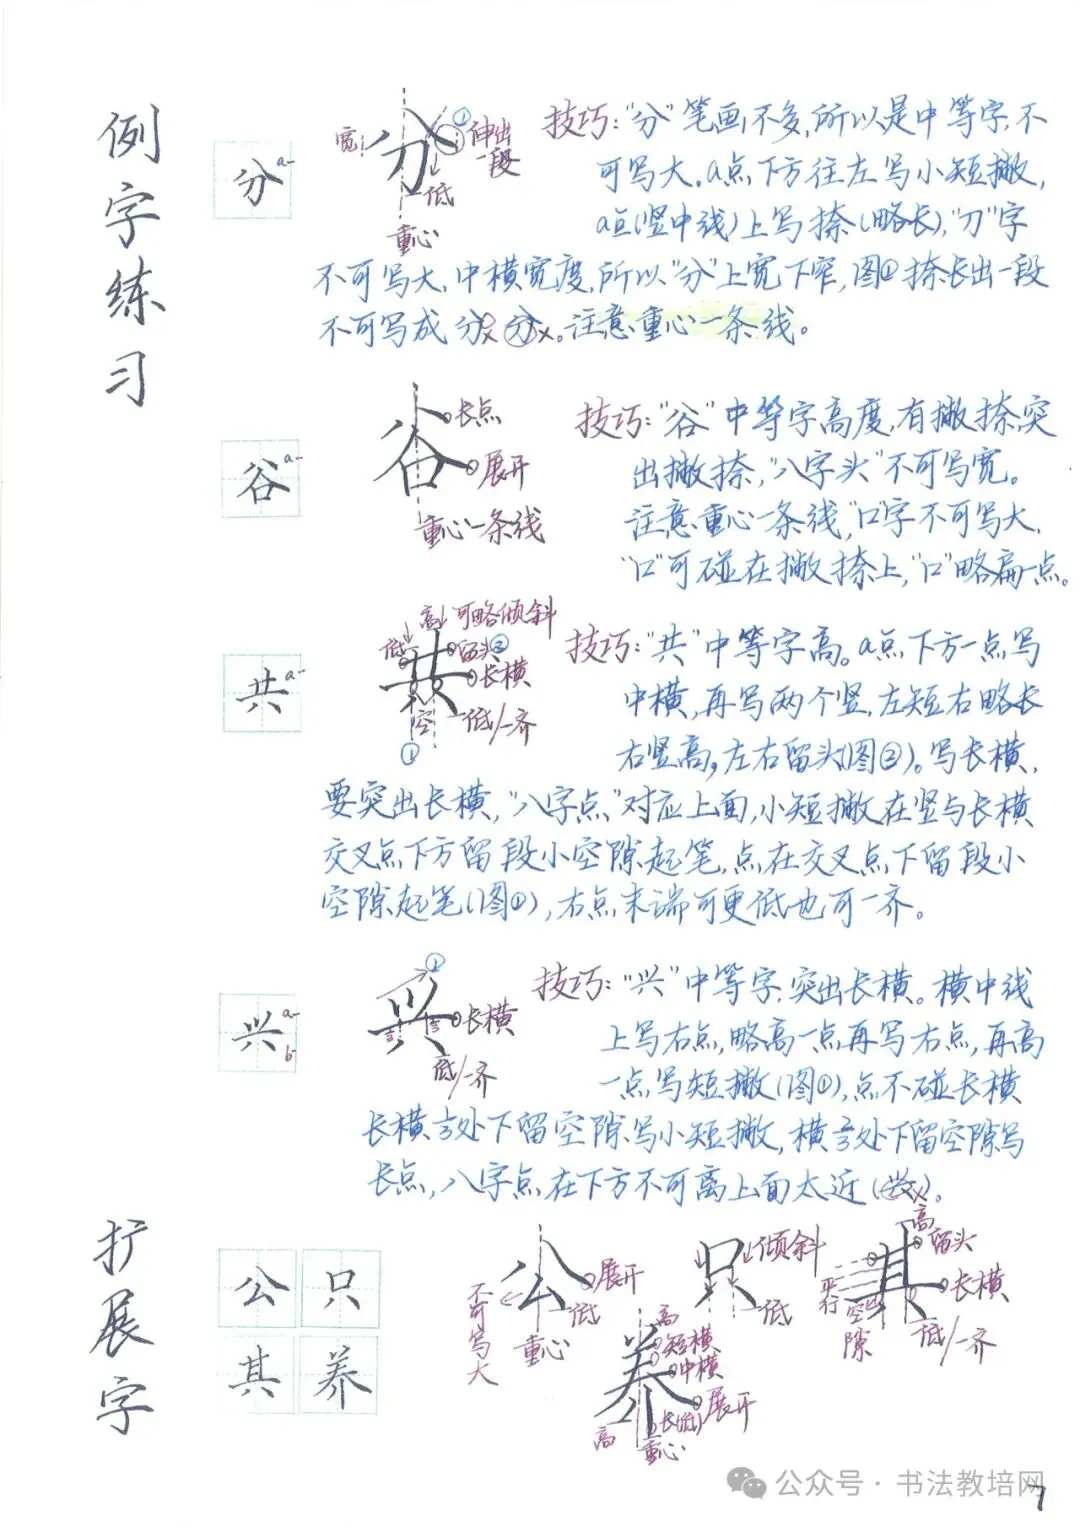 例字练习
分
a-
宽
分
①
伸出
一段
低
重心
技巧:"分"笔画不多,所以是中等字,不
可写大。a点下方往左写小短撇,
a点(竖中线)上写捺(略长),"刀"字
不可写大,中横宽度,所以"分"上宽下窄,图①捺长出一段
不可写成分x分x。注意重心一条线。
谷
a-
谷
长点
展开
重心一条线
技巧:"谷"中等字高度,有撇捺,突
出撇捺,"八字头"不可写宽。
注意重心一条线,"口"字不可写大,
"口"可碰在撇捺上,"口"略扁一点。
共
a-
低
高
可略倾斜
共
留头②
长横
空
低/一齐
①
技巧:"共"中等字高。a点下方一点写
中横,再写两个竖,左短右略长
右竖高,左右留头(图②)。写长横,
要突出长横,"八字点"对应上面,小短撇在竖与长横
交叉点下方留段小空隙起笔,点在交叉点下留段小
空隙起笔(图①),右点末端可更低也可一齐。
兴
a-
b-
①
兴
长横
低/一齐
技巧:"兴"中等字,突出长横。横中线
上写右点,略高一点再写右点,再高
一点写短撇(图①),点不碰长横
长横⅓处下留空隙写小短撇,横⅔处下留空隙写
长点,八字点在下方不可离上面太近(兴x)。
扩展字
公 只
其 养
不可写大
公
展开
低
重心
只
倾斜
低
其
高
留头
平行
长横
空隙
低/一齐
养
高
短横
中横
展开
长(低)
高
重心
公众号·书法教培网
7